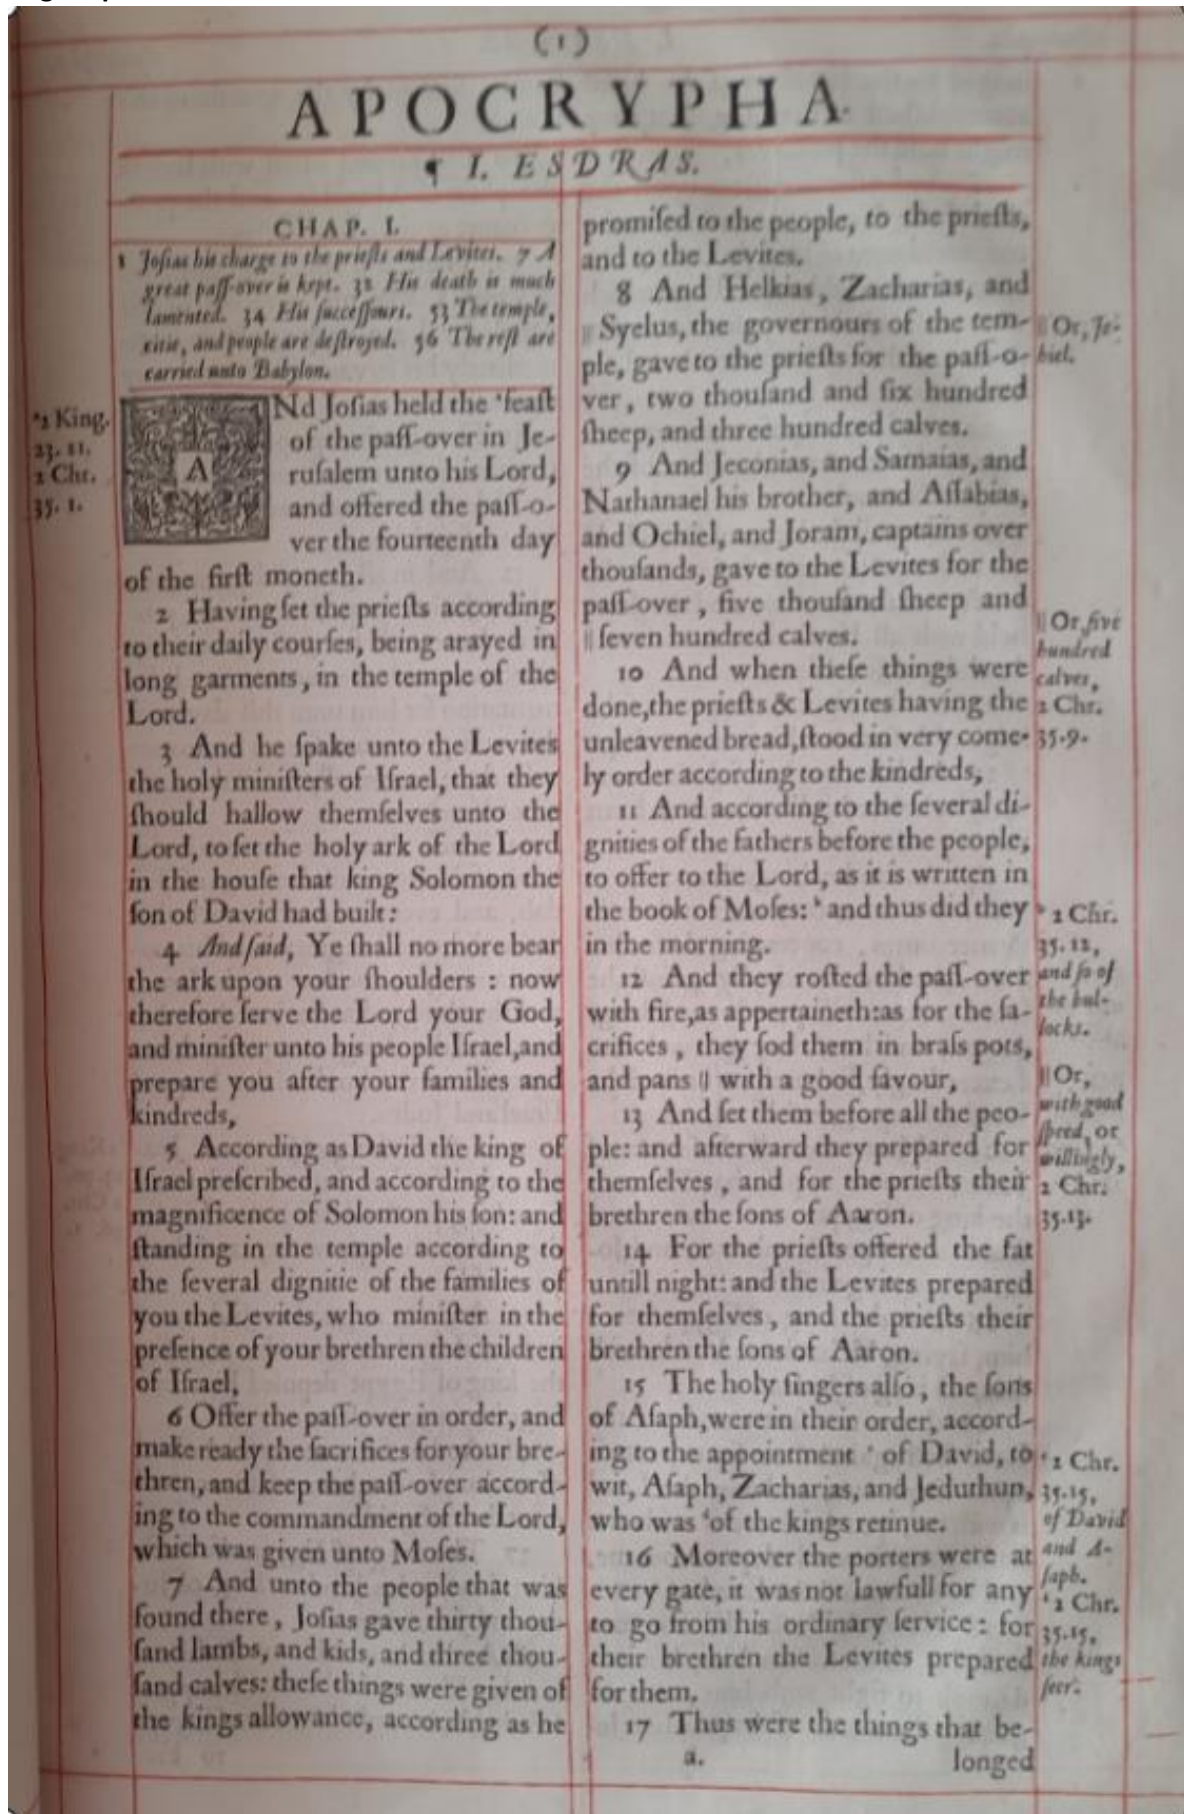 (1)
APOCRYPHA.
¶ I. ESDRAS.
CHAP. I.
1 Joſias his charge to the prieſts and Levites. 7 A
great paſſ-over is kept. 32 His death is much
lamented. 34 His ſucceſſours. 53 The temple,
citie, and people are deſtroyed. 56 The reſt are
carried unto Babylon.
*2 King.
23. 21.
2 Chr.
35. 1.
ANd Joſias held the *feaſt
of the paſſ-over in Je-
ruſalem unto his Lord,
and offered the paſſ-o-
ver the fourteenth day
of the firſt moneth.
2 Having ſet the prieſts according
to their daily courſes, being arayed in
long garments, in the temple of the
Lord.
3 And he ſpake unto the Levites
the holy miniſters of Iſrael, that they
ſhould hallow themſelves unto the
Lord, to ſet the holy ark of the Lord
in the houſe that king Solomon the
ſon of David had built:
4 And ſaid, Ye ſhall no more bear
the ark upon your ſhoulders : now
therefore ſerve the Lord your God,
and miniſter unto his people Iſrael, and
prepare you after your families and
kindreds,
5 According as David the king of
Iſrael preſcribed, and according to the
magnificence of Solomon his ſon: and
ſtanding in the temple according to
the ſeveral dignitie of the families of
you the Levites, who miniſter in the
preſence of your brethren the children
of Iſrael,
6 Offer the paſſ-over in order, and
make ready the ſacrifices for your bre-
thren, and keep the paſſ-over accord-
ing to the commandment of the Lord,
which was given unto Moſes.
7 And unto the people that was
found there, Joſias gave thirty thou-
ſand lambs, and kids, and three thou-
ſand calves: theſe things were given of
the kings allowance, according as he
promiſed to the people, to the prieſts,
and to the Levites.
8 And Helkias, Zacharias, and
|| Syelus, the governours of the tem-
ple, gave to the prieſts for the paſſ-o-
ver, two thouſand and ſix hundred
ſheep, and three hundred calves.
9 And Jeconias, and Samaias, and
Nathanael his brother, and Aſſabias,
and Ochiel, and Joram, captains over
thouſands, gave to the Levites for the
paſſ-over, five thouſand ſheep and
|| ſeven hundred calves.
10 And when theſe things were
done, the prieſts & Levites having the
unleavened bread, ſtood in very come-
ly order according to the kindreds,
11 And according to the ſeveral di-
gnities of the fathers before the people,
to offer to the Lord, as it is written in
the book of Moſes: ᵇ and thus did they
in the morning.
12 And they roſted the paſſ-over
with fire, as appertaineth: as for the ſa-
crifices, they ſod them in braſs pots,
and pans || with a good ſavour,
13 And ſet them before all the peo-
ple: and afterward they prepared for
themſelves, and for the prieſts their
brethren the ſons of Aaron.
14 For the prieſts offered the fat
untill night: and the Levites prepared
for themſelves, and the prieſts their
brethren the ſons of Aaron.
15 The holy ſingers alſo, the ſons
of Aſaph, were in their order, accord-
ing to the appointment ᶜ of David, to
wit, Aſaph, Zacharias, and Jeduthun,
who was ᵈof the kings retinue.
16 Moreover the porters were at
every gate, it was not lawfull for any
to go from his ordinary ſervice: for
their brethren the Levites prepared
for them.
17 Thus were the things that be-
a. longed
|| Or, Je-
hiel.
|| Or, five
hundred
calves,
2 Chr.
35.9.
ᵇ 2 Chr.
35. 12,
and ſo of
the bul-
locks.
|| Or,
with good
ſpeed, or
willingly,
2 Chr.
35.13.
ᶜ 2 Chr.
35.15,
of David
and A-
ſaph.
ᵈ 2 Chr.
35.15,
the kings
ſeer.